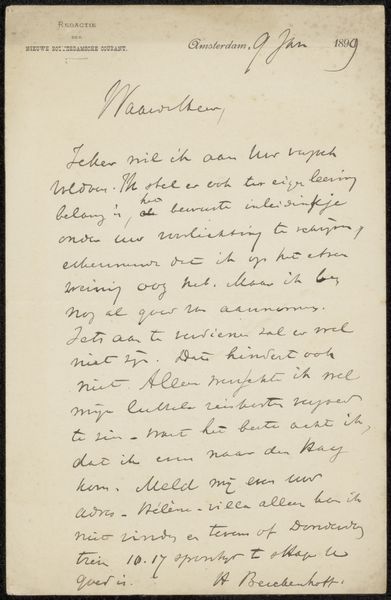 REDACTIE
DER
NIEUWE ROTTERDAMSCHE COURANT.
Amsterdam, 9 Jan 1899
Waarde Heer,
Zeker wil ik aan Uw
voldoen. Ik stel er ook ter eigen leering
belang in, het bewuste inleidinkje
onder uw voorlichting te schrijven,
erkennende dat ik op het etsen
weinig oog heb. Maar ik ben
nog al goed van aannemen.
Iets aan te verdienen zal er wel
niet zijn. Dat hindert ook
niet. Alleen ik wel
mijn luttele reiskosten vergoed
te zien - want het beste acht ik,
dat ik eens naar den Haag
kom. Meld mij even uw
adres - Hélène-villa alleen kan ik
niet vinden en tevens of Donderdag
trein 10.17 te
goed is.